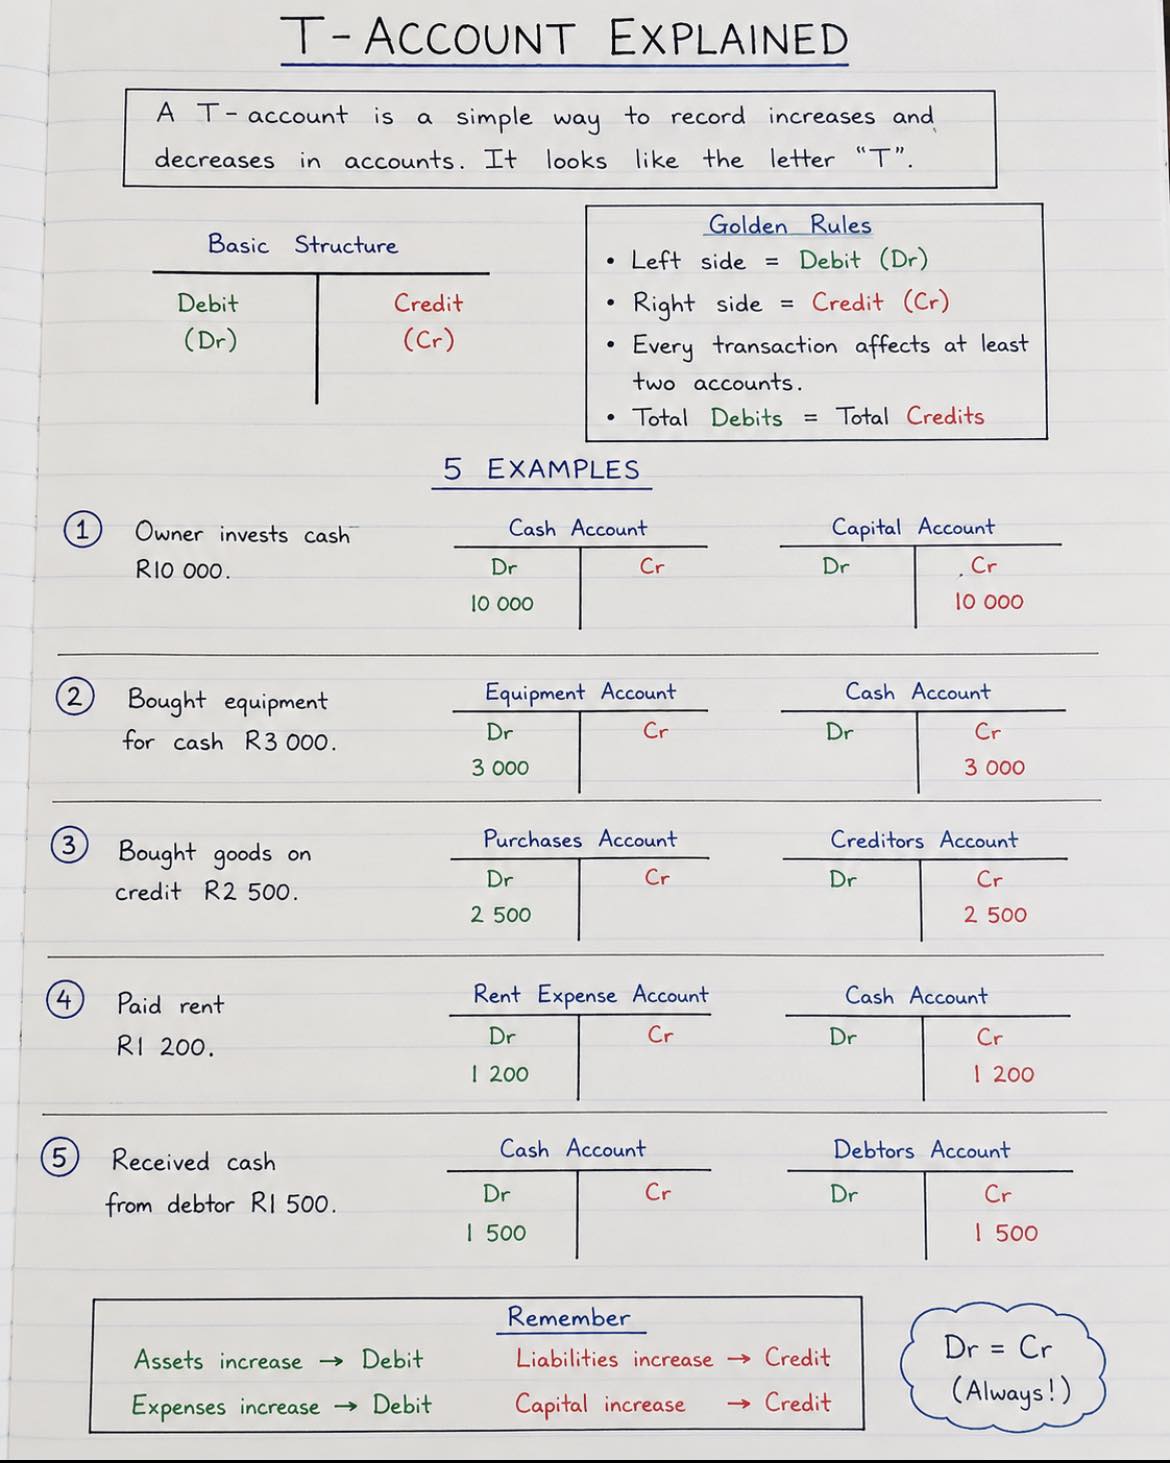 T-ACCOUNT EXPLAINED
A T-account is a simple way to record increases and
decreases in accounts. It looks like the letter "T".
Basic Structure
Debit Credit
(Dr) (Cr)
Golden Rules
• Left side = Debit (Dr)
• Right side = Credit (Cr)
• Every transaction affects at least
two accounts.
• Total Debits = Total Credits
5 EXAMPLES
1 Owner invests cash
R10 000.
Cash Account
Dr Cr
10 000
Capital Account
Dr Cr
10 000
2 Bought equipment
for cash R3 000.
Equipment Account
Dr Cr
3 000
Cash Account
Dr Cr
3 000
3 Bought goods on
credit R2 500.
Purchases Account
Dr Cr
2 500
Creditors Account
Dr Cr
2 500
4 Paid rent
R1 200.
Rent Expense Account
Dr Cr
1 200
Cash Account
Dr Cr
1 200
5 Received cash
from debtor R1 500.
Cash Account
Dr Cr
1 500
Debtors Account
Dr Cr
1 500
Remember
Assets increase → Debit Liabilities increase → Credit
Expenses increase → Debit Capital increase → Credit
Dr = Cr
(Always!)